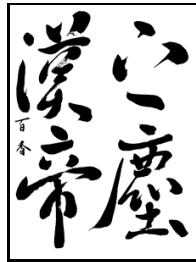 塵
漢帝
百香